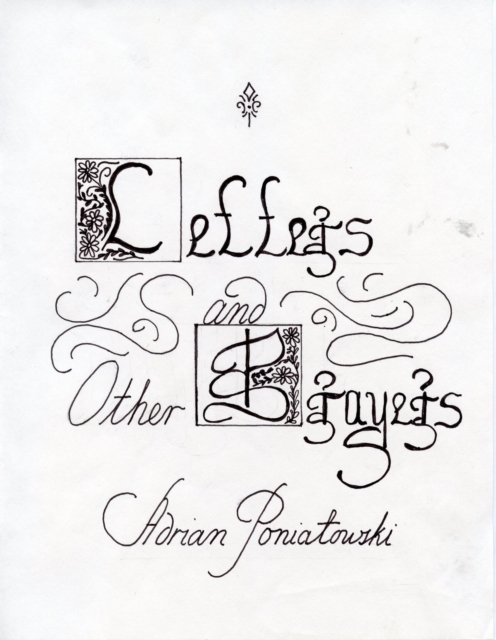 Letters
and
Other Prayers
Adrian Poniatowski